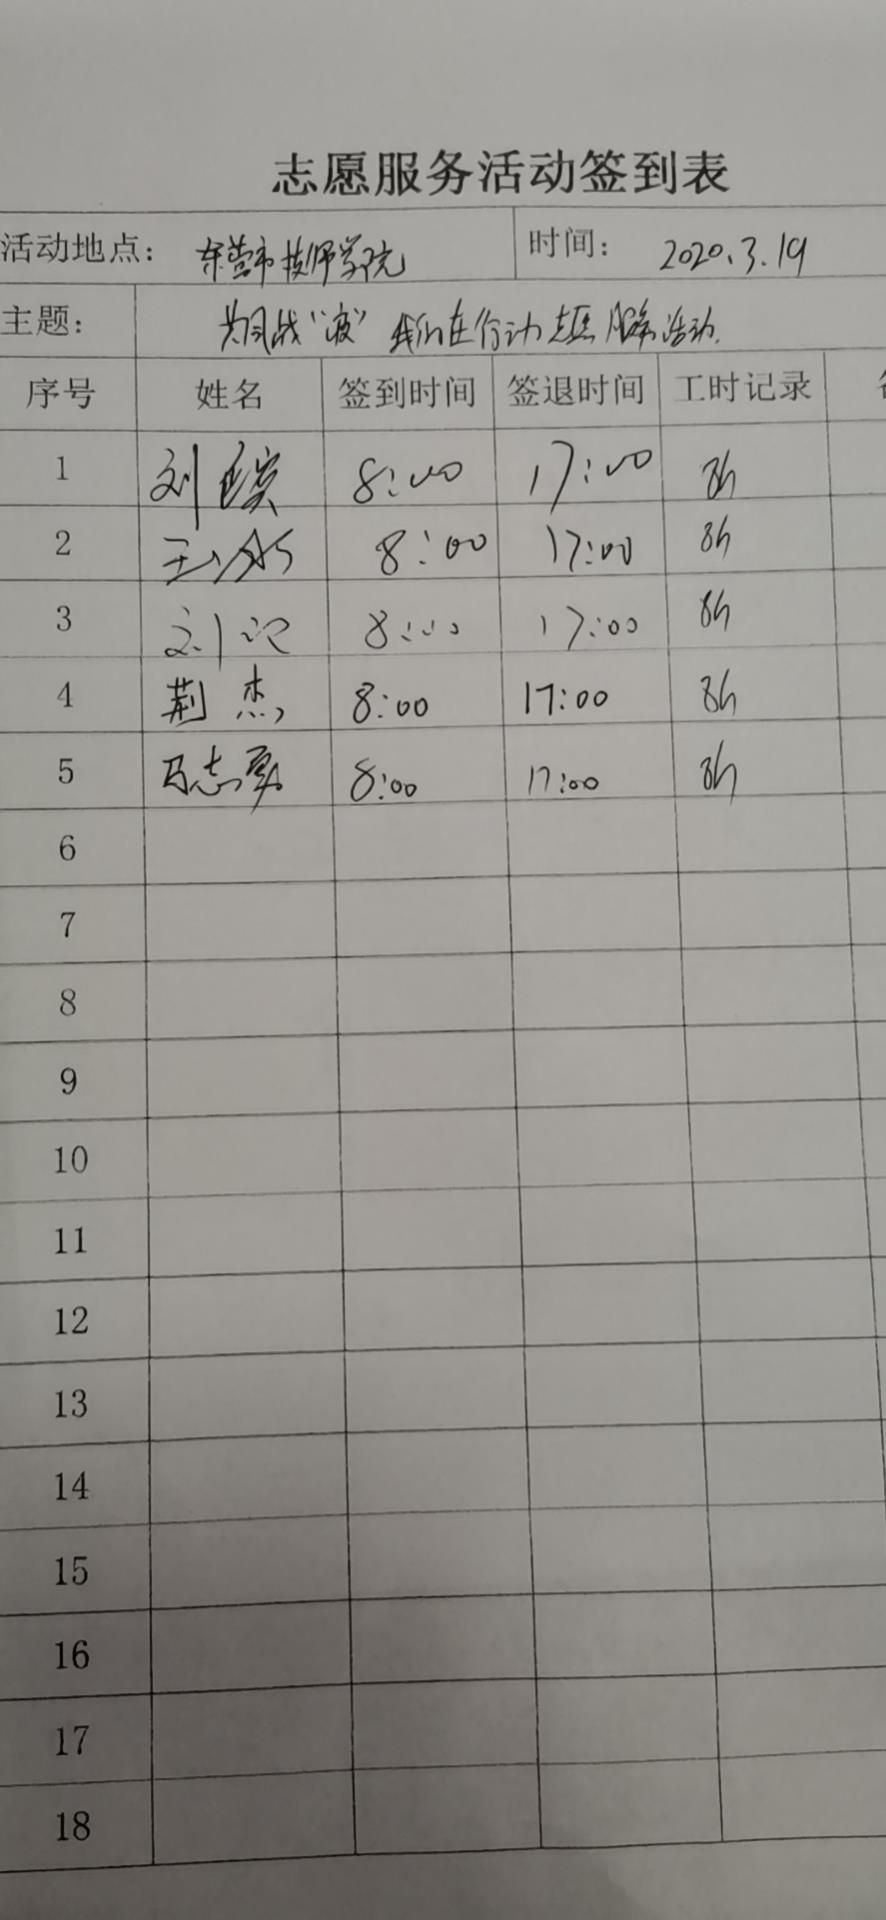 志愿服务活动签到表
活动地点： 东营市技师学院 时间： 2020.3.19
主题： 共同战“疫” 我们在行动志愿服务活动.
序号 姓名 签到时间 签退时间 工时记录
1 刘 8:00 17:00 8h
2 王 8:00 17:00 8h
3 刘 8:00 17:00 8h
4 荆杰 8:00 17:00 8h
5 马志勇 8:00 17:00 8h
6
7
8
9
10
11
12
13
14
15
16
17
18